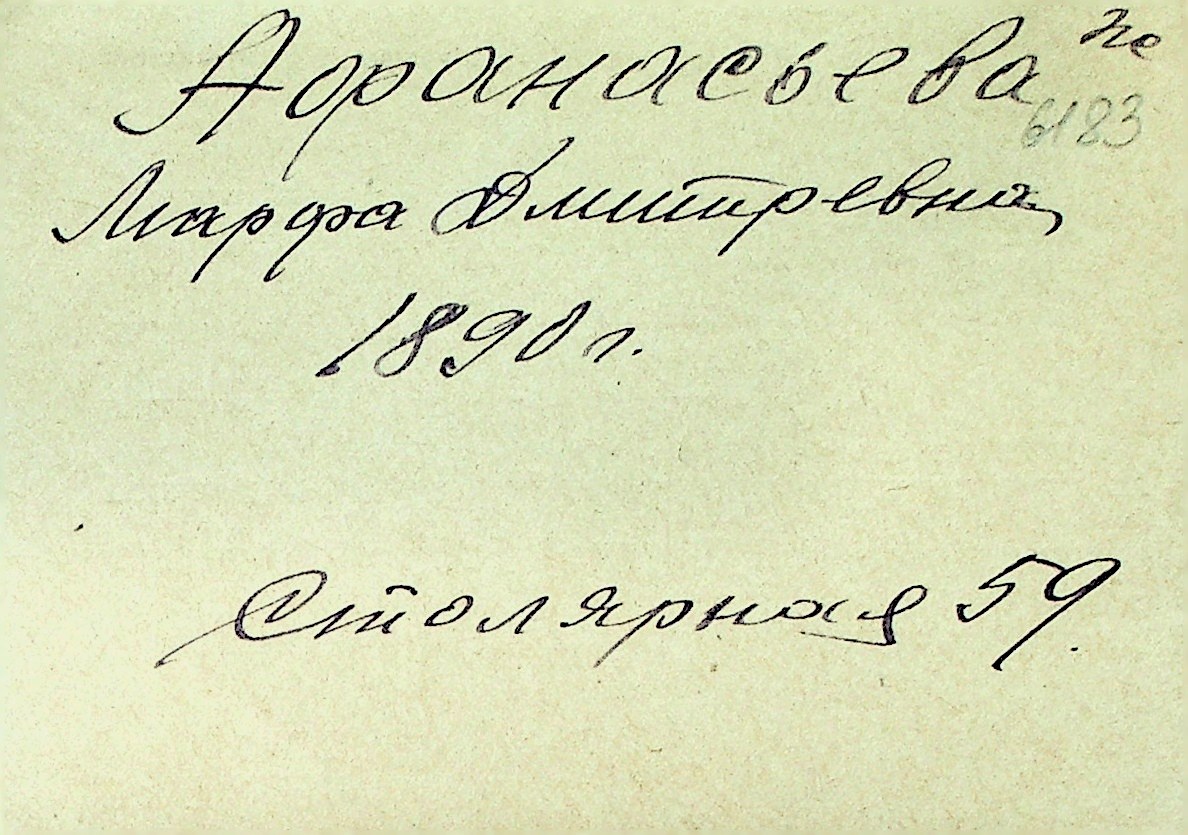 Афанасьева
6183
Марфа Дмитревна
1890 г.
Столярная 59.